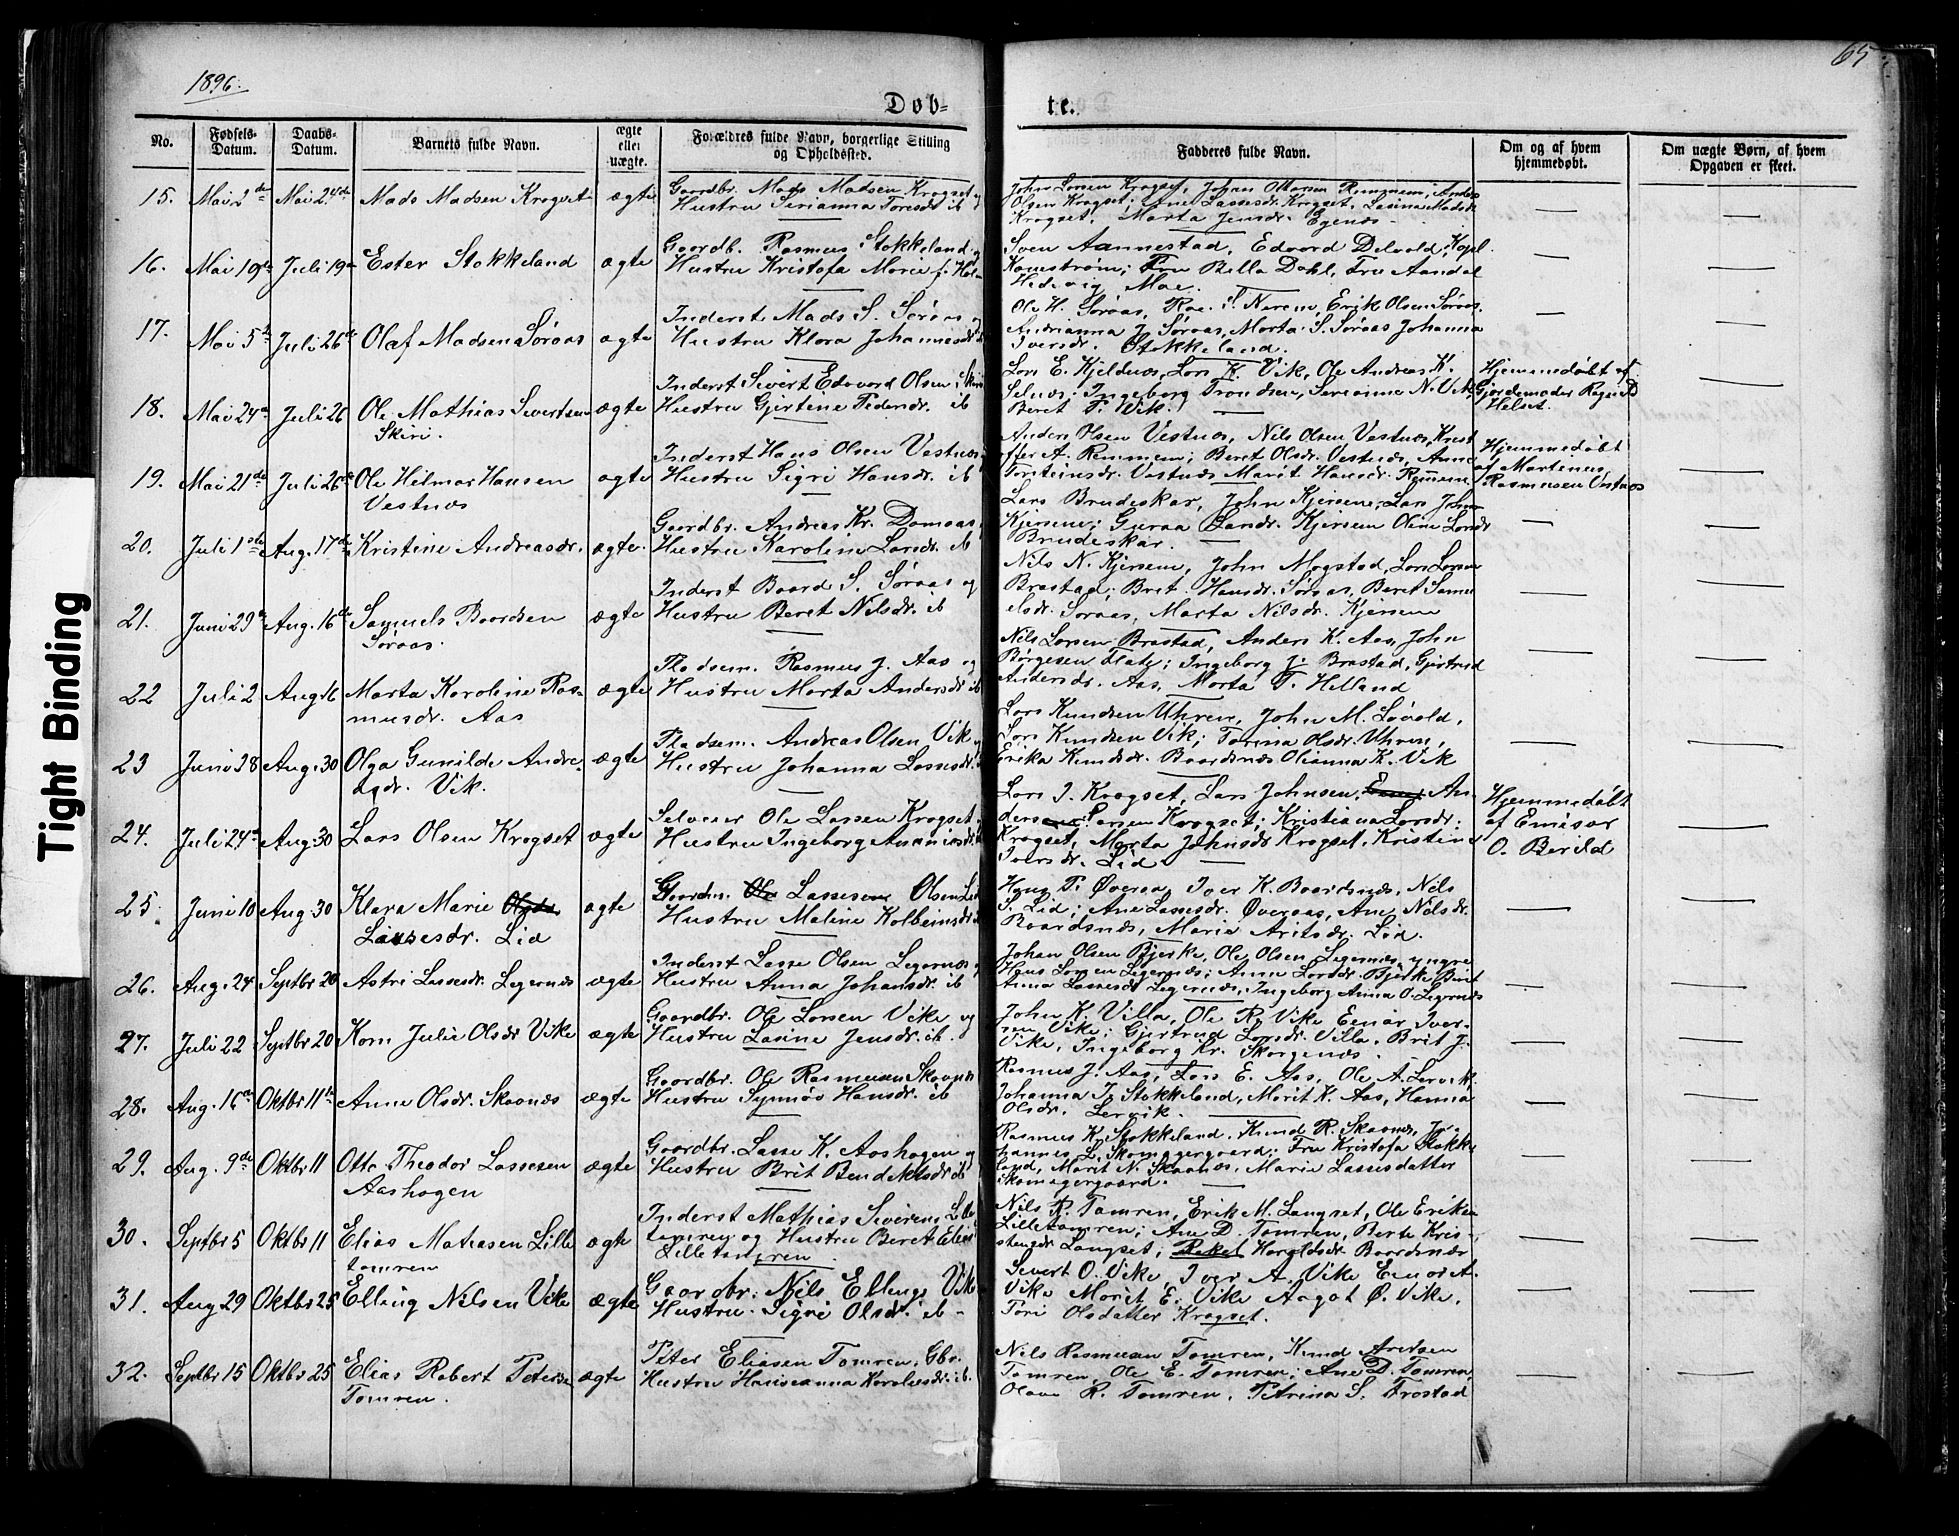 1896.
65
Döb-
te.
No.
Fødsels-
Datum.
Daabs-
Datum.
Barnets fulde Navn.
ægte
eller
uægte.
Forældres fulde Navn, borgerlige Stilling
og Opholdssted.
Fadderes fulde Navn.
Om og af hvem
hjemmedøbt.
Om uægte Børn, af hvem
Opgaven er skeet.
Tight Binding
15. Mai 2de Mai 24de Mads Madsen Krogset ægte
Gaardbr. Mads Madsen Krogset og
Hustru Serianna Toresdr ib
John Larsen Krogset, Johan Ottosen Remmem, Anders
Olsen Krogset; Ane Lassesdr. Krogset, Lasina Madsdr.
Krogset, Marta Jensdr. Egenes
16. Mai 19de Juli 19de Ester Stokkeland ægte
Gaardb. Rasmus Stokkeland og
Hustru Kristofa Marie f.
Sven Aannestad, Edvard Delvold, Kapl.
Kamstrøm; Fru Bella Dahl, Fru Aandal
Hedevig Moe.
17. Mai 5te Juli 26de Olaf Madsen Søraas ægte
Inderst Mads S. Søraas og
Hustru Klara Johannesdr ib
Ole H. Søraas, Rae. S. Nerem, Erik Olsen Søraas
Andrianna J. Søraas, Marta S. Søraas Johanna
Iversdr. Stokkeland.
18. Mai 24de Juli 26 Ole Mathias Sivertsen ægte
Skiri.
Inderst Sivert Edvard Olsen Skiri
Hustru Gjertine Pedersdr. ib
Lars E. Kjeldnæs, Lars K. Vik, Ole Andreas K.
Selnæs; Ingeborg Trondsen, Serianne N. Vik
Beret T. Vik.
Hjemmedøbt af
Gjordemoder Ragna D
Helset.
19. Mai 21de Juli 26de Ole Hilmar Hansen ægte
Vestnæs
Inderst Hans Olsen Vestnæs
Hustru Sigri Hansdr. ib
Anders Olsen Vestnæs, Nils Olsen Vestnæs, Krist
offer A. Remmem; Beret Olsdr. Vestnæs, Anne
Torsteinsdr. Vestnæs Marit Hansdr. Remmem
Hjemmedøbt
af Martinus
Rasmussen Vestnæs
20. Juli 1ste Aug. 17de Kristine Andreasdr. ægte
Gaardbr. Andreas Kr. Domaas,
Hustru Karoline Larsdr. ib
Lars Brudeskar, John Kjersem, Lars Johns
Kjersem; Guraa Larsdr. Kjersem Oline Larsdr
Brudeskar.
21. Juni 29de Aug. 16de Samuel Baardsen ægte
Søraas.
Inderst Baard S. Søraas og
Hustru Beret Nilsdr. ib
Nils N. Kjersem, John Mogstad, Lars Larsen
Brastad; Brit Hansdr. Søraas, Beret Samu
elsdr. Søraas, Marta Nilsdr. Kjersem
22 Juli 2 Aug 16 Marta Karoline Ras- ægte
musdr. Aas
Pladsem. Rasmus J. Aas og
Hustru Marta Andersdr ib
Nils Larsen Brastad, Anders K. Aas, John
Børgesen Flate; Ingeborg J. Brastad, Gjertrud
Andersdr. Aas, Marta T. Helland
23 Juni 28 Aug. 30 Olga Gunilde Andre- ægte
asdr. Vik.
Pladsem. Andreas Olsen Vik
Hustru Johanna Lassesdr.
Lars Knudsen Uhren, John M. Løvold,
Lars Knudsen Vik; Torina Olsdr. Uhren,
Erika Knudsdr. Baardsnæs Olianna K. Vik
24. Juli 24de Aug 30 Lars Olsen Krogset ægte
Selveier Ole Lassen Krogset
Hustru Ingeborg Ananiasdr.
Lars I. Krogset, Lars Johnsen, An-
ders Larsen Krogset; Kristiana Larsdr.
Krogset, Marta Johnsdr Krogset, Kristine
Iversdr. Lid
Hjemmedøbt
af Emisær
O. Berild
25. Juni 10 Aug 30 Klara Marie Olsdr ægte
Lassesdr. Lid
Gaardm. Ole Lassesen Olsen Lid
Hustru Maline Kolbeinsdr
Hans T. Øveraas, Iver K. Baardsnæs, Nils
S. Lid; Ane Lassesdr. Øveraas, Ane Nilsdr.
Baardsnæs, Marie Arntsdr. Lid.
26. Aug. 24 Septbr 20 Astri Lassesdr. Legernæs ægte
Inderst Lasse Olsen Legernæs
Hustru Anna Johansdr. ib
Johan Olsen Bjerke, Ole Olsen Legernæs yngre
Hans Larsen Legernæs; Anne Larsdr. Bjerke Brit
Anna Lassesdr Legernæs, Ingeborg Anna O. Legernæs
27. Juli 22 Septbr 20 Karn Julie Olsdr Vike ægte
Gaardbr. Ole Larsen Vike og
Hustru Lasine Jensdr. ib.
John K. Villa, Ole R. Vike Einar Iver-
sen Vike; Gjertrud Larsdr. Villa, Brit J.
Vike, Ingeborg Kr. Skorgenes.
28. Aug. 16de Oktbr 11te Anne Olsdr. Skaanæs ægte
Gaardbr. Ole Rasmussen Skaanæs
Hustru Synnøv Hansdr. ib
Rasmus J. Aas, Lars E. Aas, Ole A. Lervik
Johanna J. Stokkeland, Marit K. Aas, Hanna
Olsdr. Lervik.
29. Aug. 9de Oktbr 11 Otto Theodor Lassesen ægte
Aashagen
Gaardbr. Lasse K. Aashagen og
Hustru Brit Bendiktsdr ib
Rasmus K. Stokkeland, Knud R. Skaanæs, Jo-
hannes L. Skomagergaard; Fru Kristofa Stokke
land, Marit N. Skaanæs, Marie Lassesdatter
Skomagergaard.
30. Septbr 5 Oktbr 11 Elias Matiasen Lille ægte
tomren
Inderst Mathias Severens Lille
tomren og Hustru Beret Elias
Lilletomren
Nils R. Tomren, Erik M. Langset, Ole Eriksen
Lilletomren; Ane D. Tomren, Berte Kris-
stensdr Langset, Rakel Haraldsdr. Baardsnæs
31. Aug 29 Oktbr 25 Elling Nilsen Vike ægte
Gaardbr. Nils Ellings Vik
Hustru Sigri Olsdr. ib
Sivert O. Vike, Iver A. Vike Einar A.
Vike Marit E. Vike Aagot Ø. Vike,
Tori Olsdatter Krogset.
32. Septbr 15 Oktbr 25 Elias Robert Petersen ægte
Tomren.
Peter Eliasen Tomren, Gbr.
Hustru Hanseanna Karolusdr. ib.
Nils Rasmussen Tomren, Knud Arntsen
Tomren, Ole E. Tomren; Ane D. Tomren,
Olava R. Tomren, Petrina S. Frostad